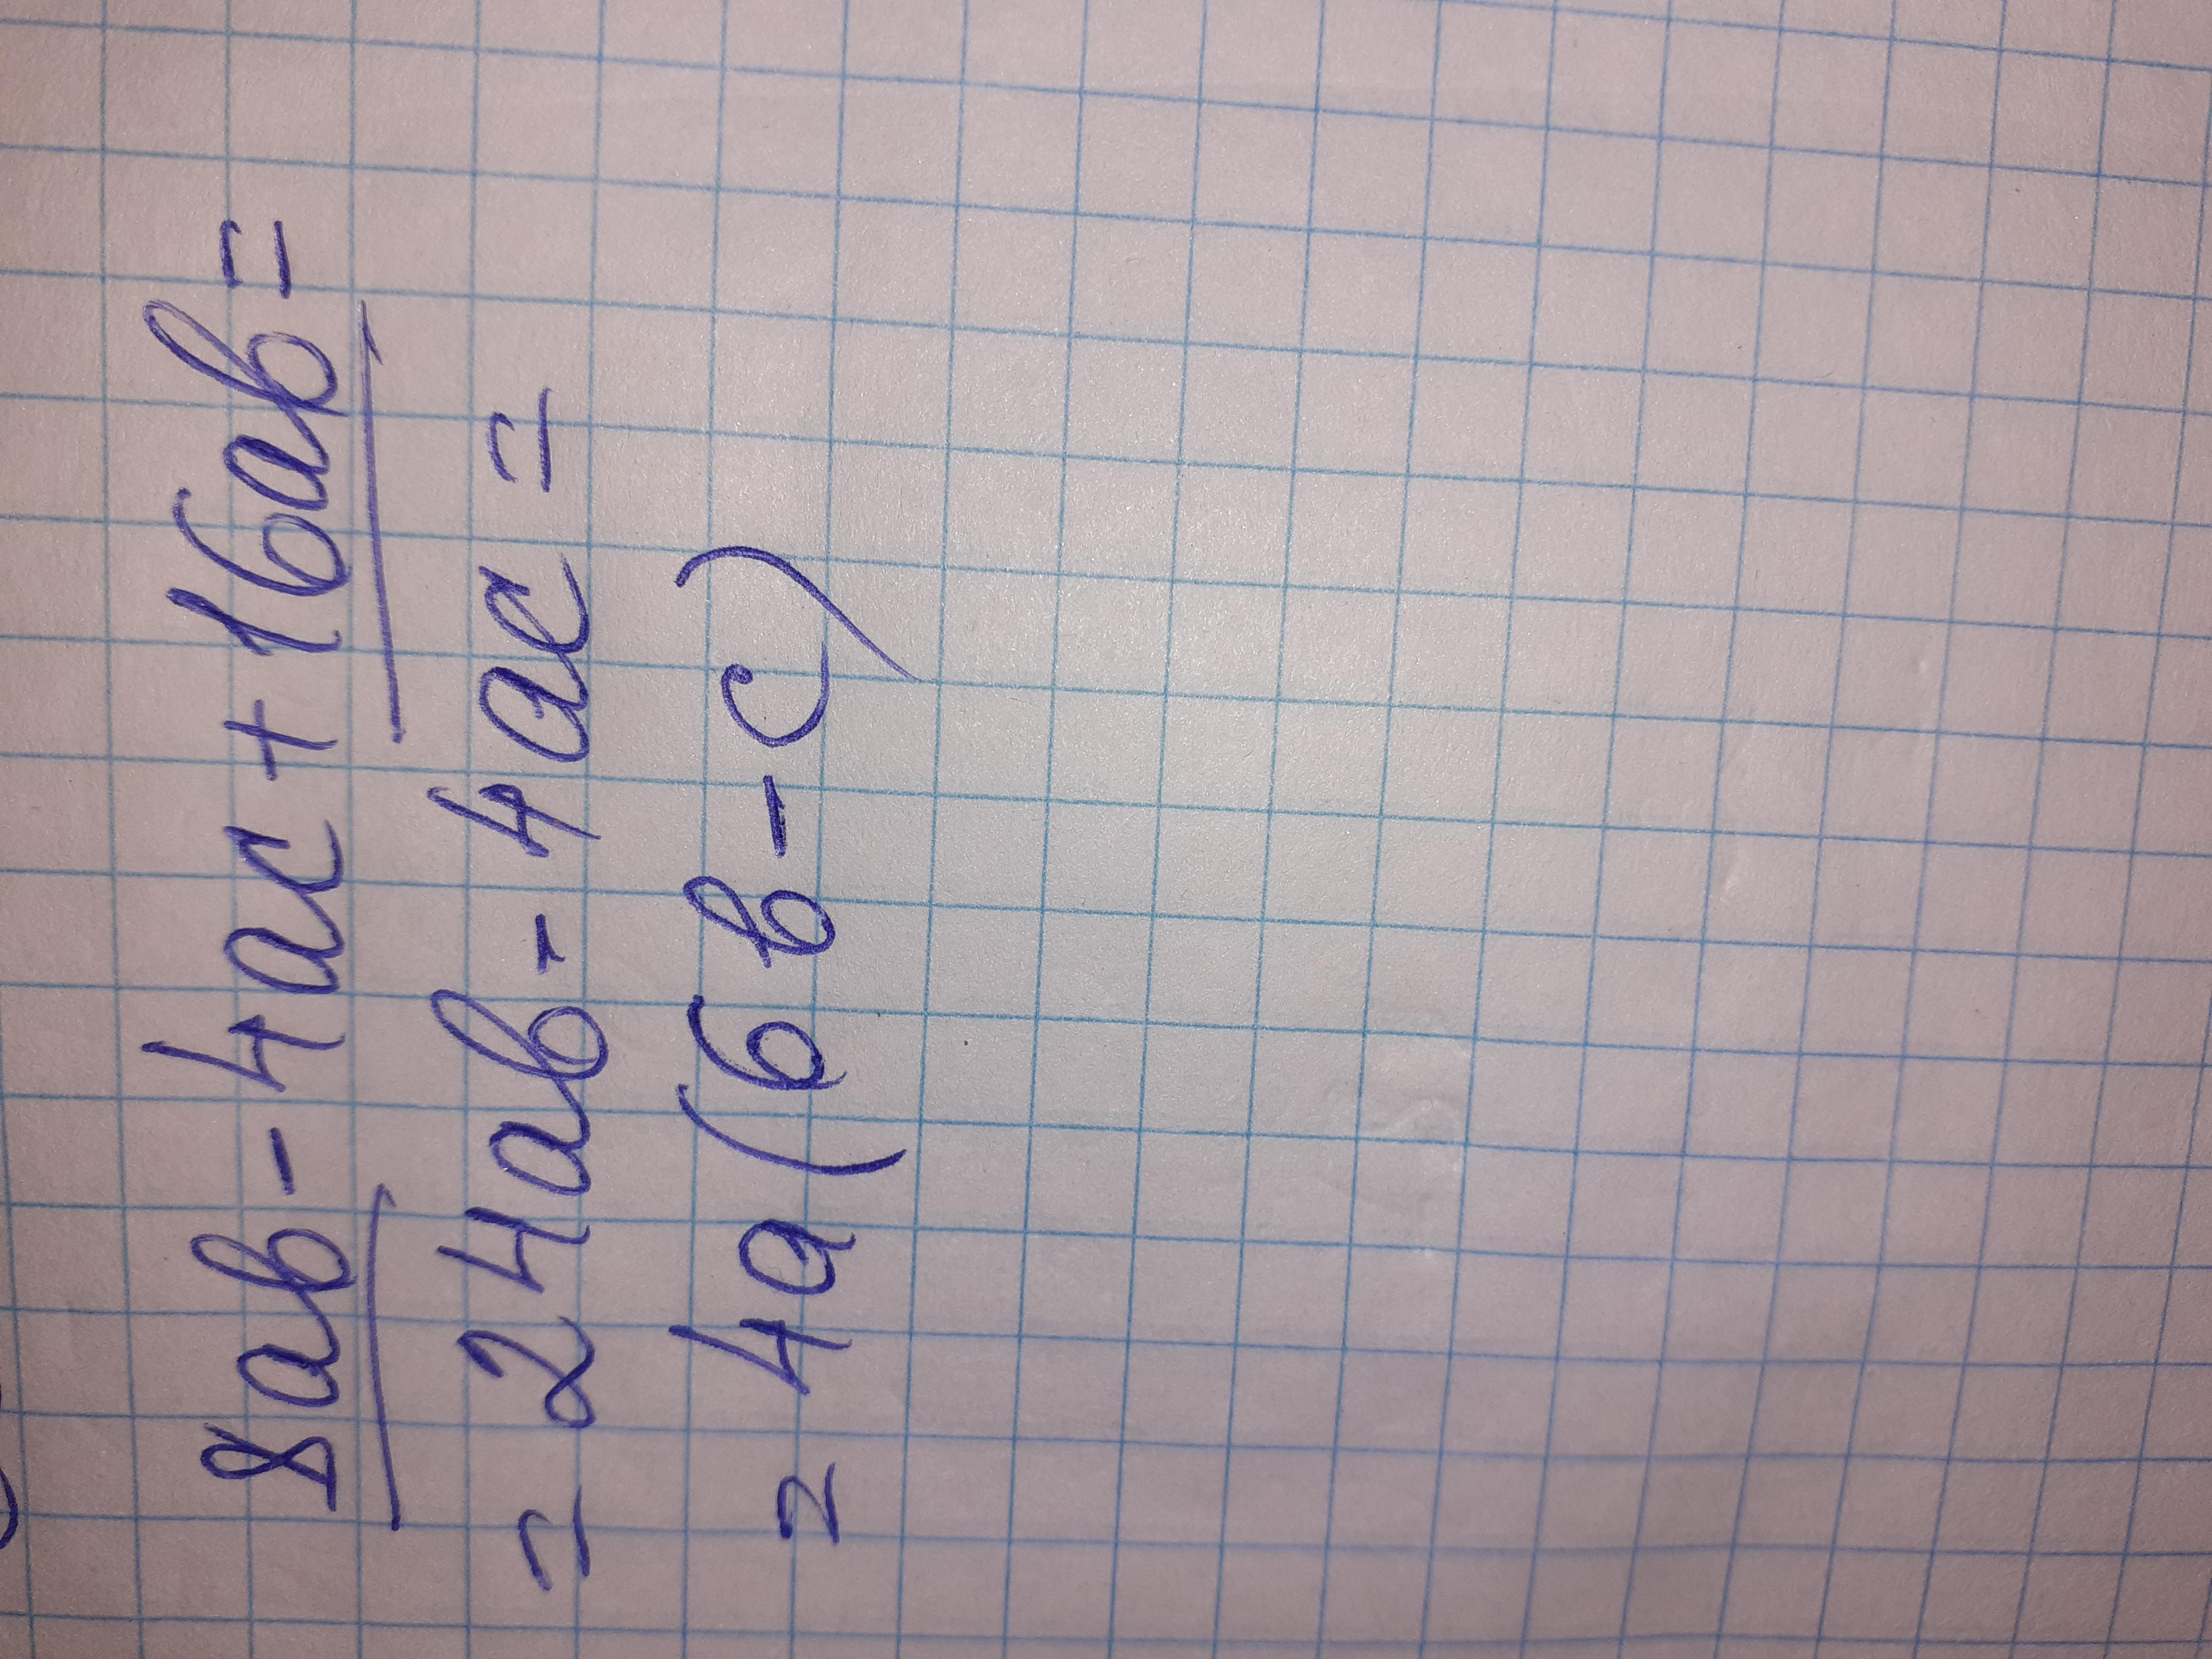 8ab - 4ac + 16ab =
= 24ab - 4ac =
= 4a(6b - c)